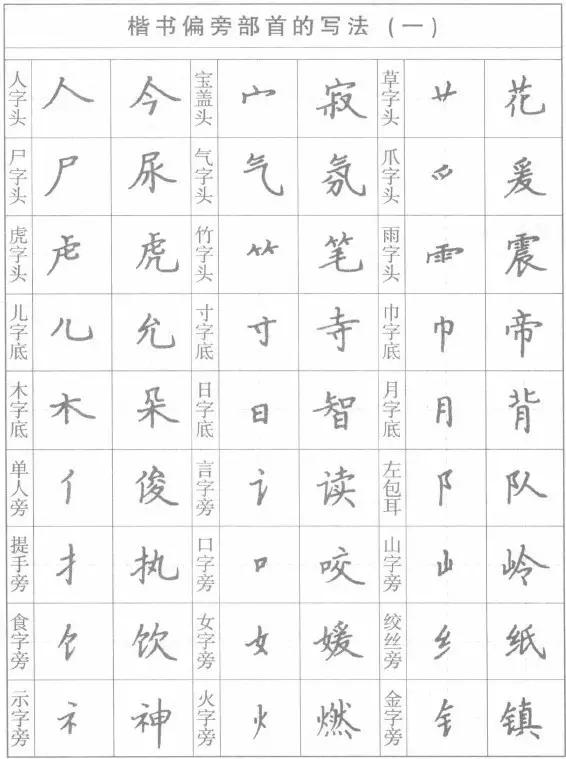 楷书偏旁部首的写法（一）
人字头 人 今 宝盖头 宀 寂 草字头 艹 花
尸字头 尸 尿 气字头 气 氛 爪字头 爫 爰
虎字头 虍 虎 竹字头 ⺮ 笔 雨字头 ⻗ 震
儿字底 儿 允 寸字底 寸 寺 巾字底 巾 帝
木字底 木 朵 日字底 日 智 月字底 月 背
单人旁 亻 俊 言字旁 讠 读 左包耳 阝 队
提手旁 扌 执 口字旁 口 咬 山字旁 山 岭
食字旁 饣 饮 女字旁 女 媛 绞丝旁 纟 纸
示字旁 礻 神 火字旁 火 燃 金字旁 钅 镇